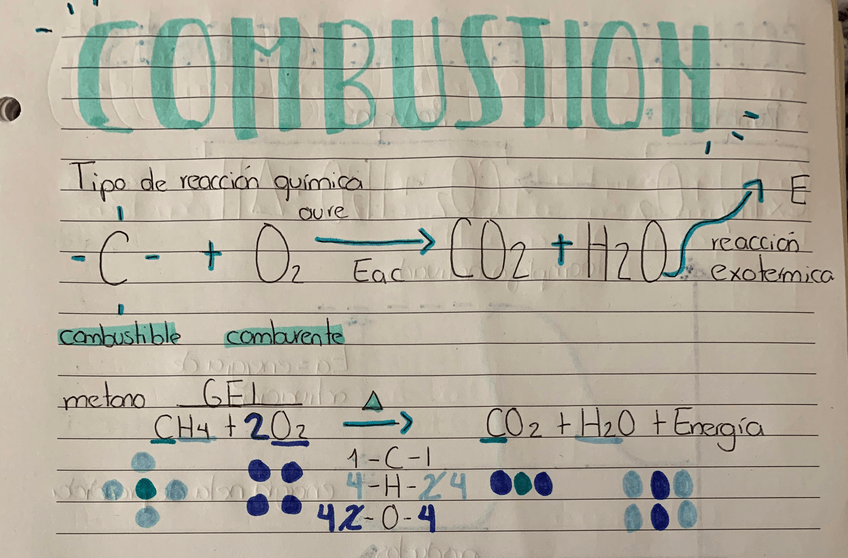 COMBUSTION
Tipo de reacción química
E
aure
-C- + O2 → CO2 + H2O reacción
Eac exotermica
combustible comburente
metano GEI
Δ
CH4 + 2O2 → CO2 + H2O + Energía
1-C-1
4-H-2 4
4 2-O-4